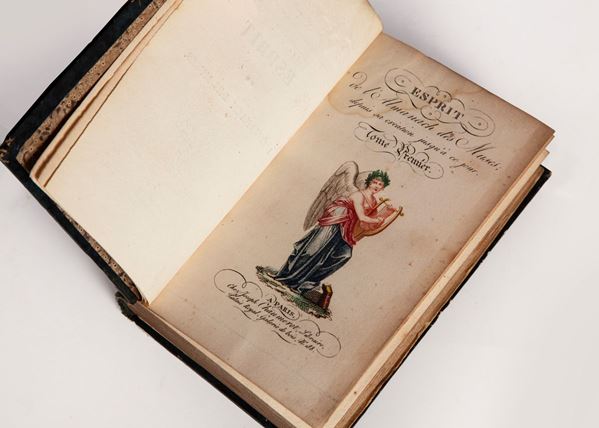 ESPRIT
De l'Almanach des Muses,
depuis sa création jusqu'à ce jour.
Tome Premier.
A PARIS,
Chez Joseph Chaumerot, Libraire,
Palais Royal, Galerie de bois,